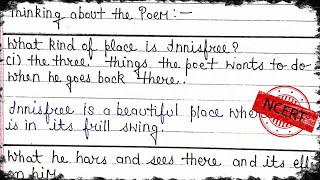 Thinking about the Poem:-
What kind of place is Innisfree?
(i) the three things the poet wants to do
when he goes back there.
Innisfree is a beautiful place whe
is in its frill swing.
NCERT
What he hars and sees there and its eff
on him